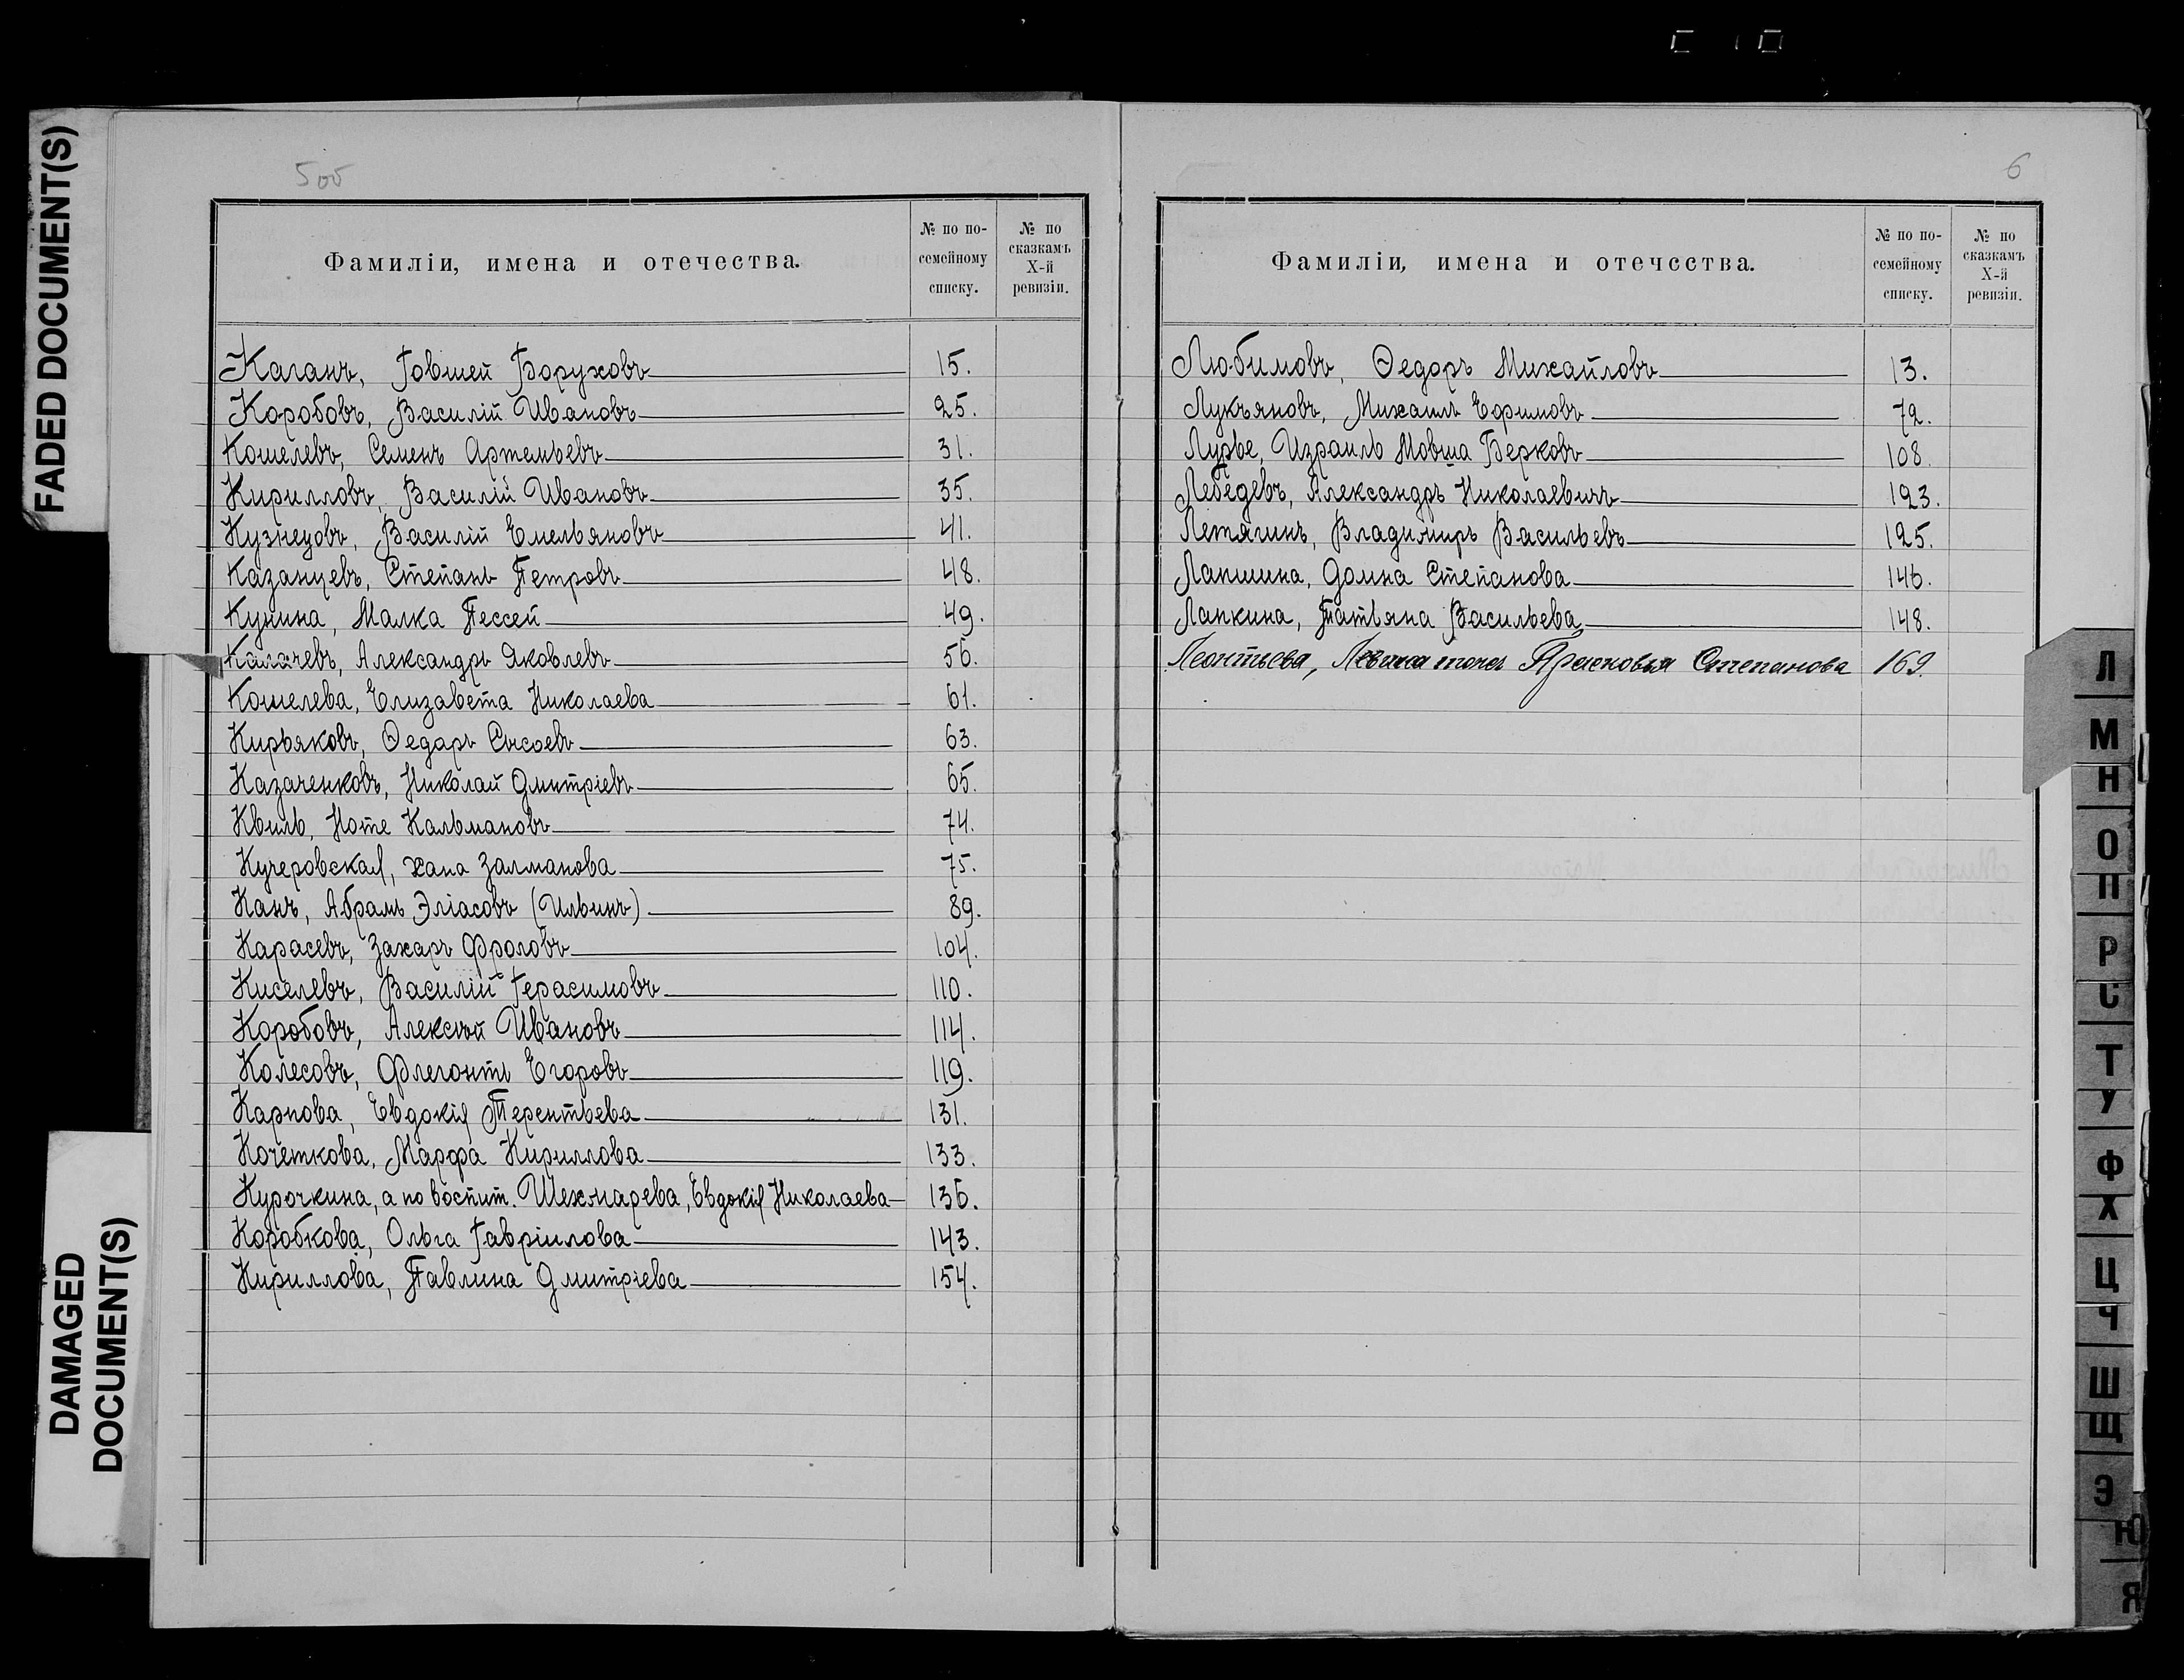 FADED DOCUMENT(S)
DAMAGED
DOCUMENT(S)
Фамиліи, имена и отечества.
№ по по-
семейному
списку.
№ по
сказкамъ
X-й
ревизіи.
Каганъ, Говшей Боруховъ 15.
Коробовъ, Василій Ивановъ 25.
Кошелевъ, Семенъ Артемьевъ 31.
Кирилловъ, Василій Ивановъ 35.
Кузнецовъ, Василій Емельяновъ 41.
Казанцевъ, Степанъ Петровъ 48.
Кунина, Малка Пессей 49.
Калачевъ, Александръ Яковлевъ 56.
Кошелева, Елизавета Николаева 61.
Кирьяковъ, Ѳедаръ Сысоевъ 63.
Казаченковъ, Николай Дмитріевъ 65.
Квиль, Ноте Кальмановъ 74.
Кучеровская, Хана Залманова 75.
Канъ, Абрамъ Эліасовъ (Ильинъ) 89.
Карасевъ, Захаръ Фроловъ 104.
Киселевъ, Василій Герасимовъ 110.
Коробовъ, Алексѣй Ивановъ 114.
Колесовъ, Флегонтъ Егоровъ 119.
Карпова, Евдокія Терентьева 131.
Кочеткова, Марфа Кириллова 133.
Курочкина, а по воспит. Шехмарева, Евдокія Николаева 136.
Коробкова, Ольга Гавріилова 143.
Кириллова, Павлина Дмитріева 154.
6
Фамиліи, имена и отечества.
№ по по-
семейному
списку.
№ по
сказкамъ
X-й
ревизіи.
Любимовъ, Ѳедоръ Михайловъ 13.
Лукъяновъ, Михаилъ Ефимовъ 72.
Лурье, Израиль Мовша Берковъ 108.
Лебедевъ, Александръ Николаевичъ 123.
Летягинъ, Владимиръ Васильевъ 125.
Лапшина, Домна Степанова 146.
Лапкина, Татьяна Васильева 148.
Леонтьева, Левина тожъ Прасковья Степанова 169.
Л
М
Н
О
П
Р
С
Т
У
Ф
Х
Ц
Ч
Ш
Щ
Э
Ю
Я